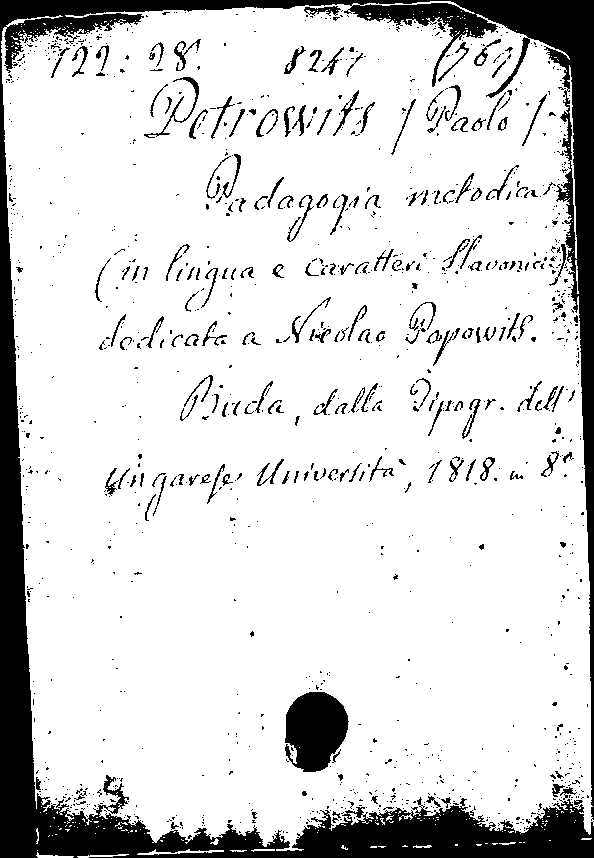 122: 28. 8247 (769)
Petrowits / Paolo /:
Padagogia metodica
(in lingua e caratteri Slavonici)
dedicata a Nicolao Popowits.
Buda, dalla Tipogr. dell'
Ungarese Università, 1818. in 8º.